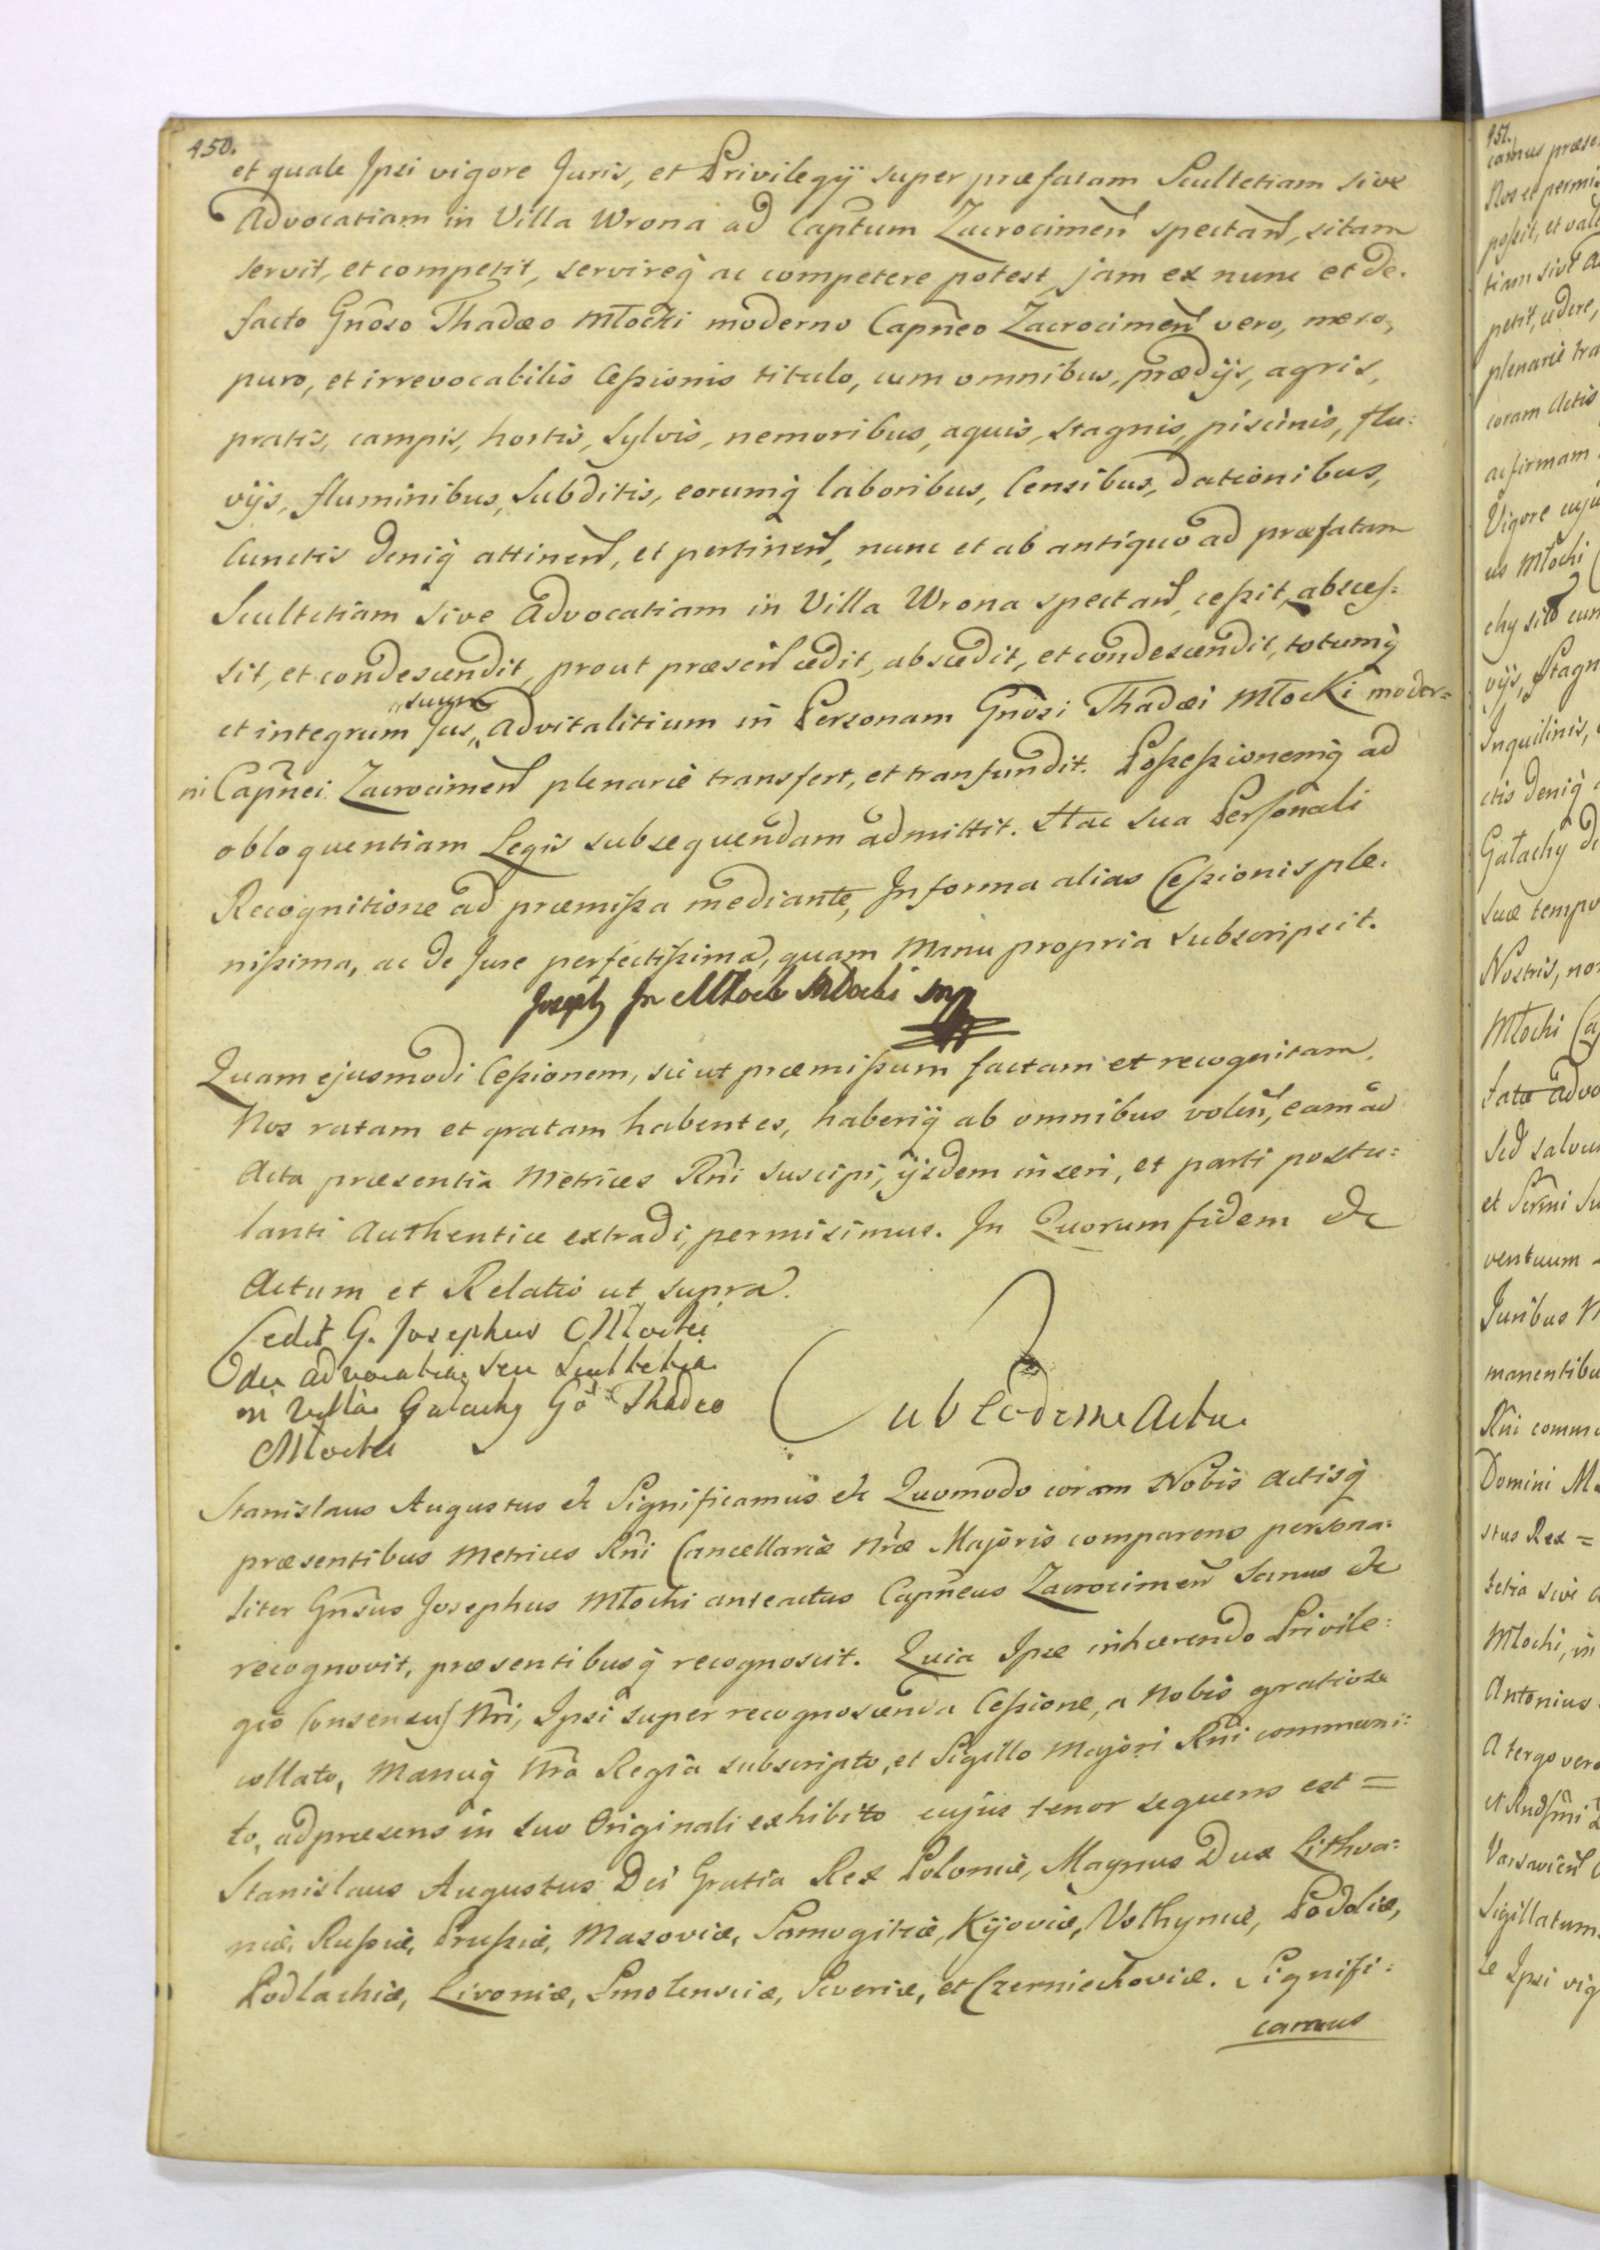 450.
et quale Ipsi vigore Juris, et Privilegÿ super præfatam Scultetiam sive
Advocatiam in Villa Wrona ad Captum Zacrocimen spectan, sitam
servit, et competit, servireq̃ ac competere potest jam ex nunc et de.
facto Gnoso Thadæo Młocki moderno Capneo Zacrocimen vero, mero,
puro, et irrevocabilis Cessionis titulo, cum omnibus, prædÿs, agris,
pratis, campis, hortis, sylvis, nemoribus, aquis, stagnis, piscinis, flu:
vÿs, fluminibus, subditis, eorumq̃ laboribus, Censibus, dationibus,
Cunctis deniq̃ attinen, et pertinen, nunc et ab antiquo ad præfatam
Scultetiam sive Advocatiam in Villa Wrona spectan, cessit, absces:
sit, et condescendit, prout præsen cedit, abscedit, et condescendit, totumq̃
et integrum Jus suum Advitalitium in Personam Gnosi Thadæi Młocki moder=
ni Capnei Zacrocimen plenarie transfert, et tranfundit. Possessionemq̃ ad
obloquentiam Legis subsequendam admittit. Hac sua Personali
Recognitione ad præmissa mediante, In forma alias Cessionis ple.
nissima, ac de Jure perfectissima, quam Manu propria subscripsit.
Joseph Jn Młock Młocki mp
Quam ejusmodi Cessionem, sicut præmissum factam et recognitam,
Nos ratam et gratam habentes, haberiq̃ ab omnibus volen, eam ad
Acta præsentia Metrices Rni suscipi, ijsdem inseri, et parti postu:
lanti Authentice extradi, permisimus. In Quorum fidem &c
Actum et Relatio ut supra.
Cedit G. Josephus Młocki
de advocatia seu Scultetia
in Villa Galachy Go Thadeo
Młocki
Sub Eodem Actu.
Stanislaus Augustus &c Significamus &c Quomodo coram Nobis Actisq̃
præsentibus Metrices Rni Cancellariæ Nræ Majoris comparens persona:
liter Gnsus Josephus Młocki anteactus Capneus Zacrocimen Sanus &c
recognovit, præsentibusq̃ recognoscit. Quia Ipse inhærendo Privile:
gio Consensus Nri, Ipsi super recognoscenda Cessione, a Nobis gratiose
collato, Manuq̃ Nra Regia subscripto, et Sigillo Majori Rni communi:
to, ad præsens in suo Originali exhibito cujus tenor sequens est =
Stanislaus Augustus Dei Gratia Rex Poloniæ, Magnus Dux Lithva:
niæ, Russiæ, Prussiæ, Masoviæ, Samogitiæ, Kÿoviæ, Volhyniæ, Podoliæ,
Podlachiæ, Livoniæ, Smolensciæ, Severiæ, et Czerniechoviæ. Signifi:
camus
451.
camus
Nos et permis
possit, et vale
tiam sive A
petit, cedere,
plenarie tra
coram Actis
ac firmam
Vigore cuju
us Młocki
chy sito cum
vÿs, Stagn
Inquilinis,
ctis deniq̃
Gałachy de
suæ tempo
Nostris, non
Młocki Ca
fato advo
Sed salvu
et Sermi Su
ventuum
Juribus N
manentibu
Rni commu
Domini M
stus Rex =
tetia sive a
Młocki, in
Antonius
A tergo vero
Varsavien
Sigillatum
le Ipsi vig